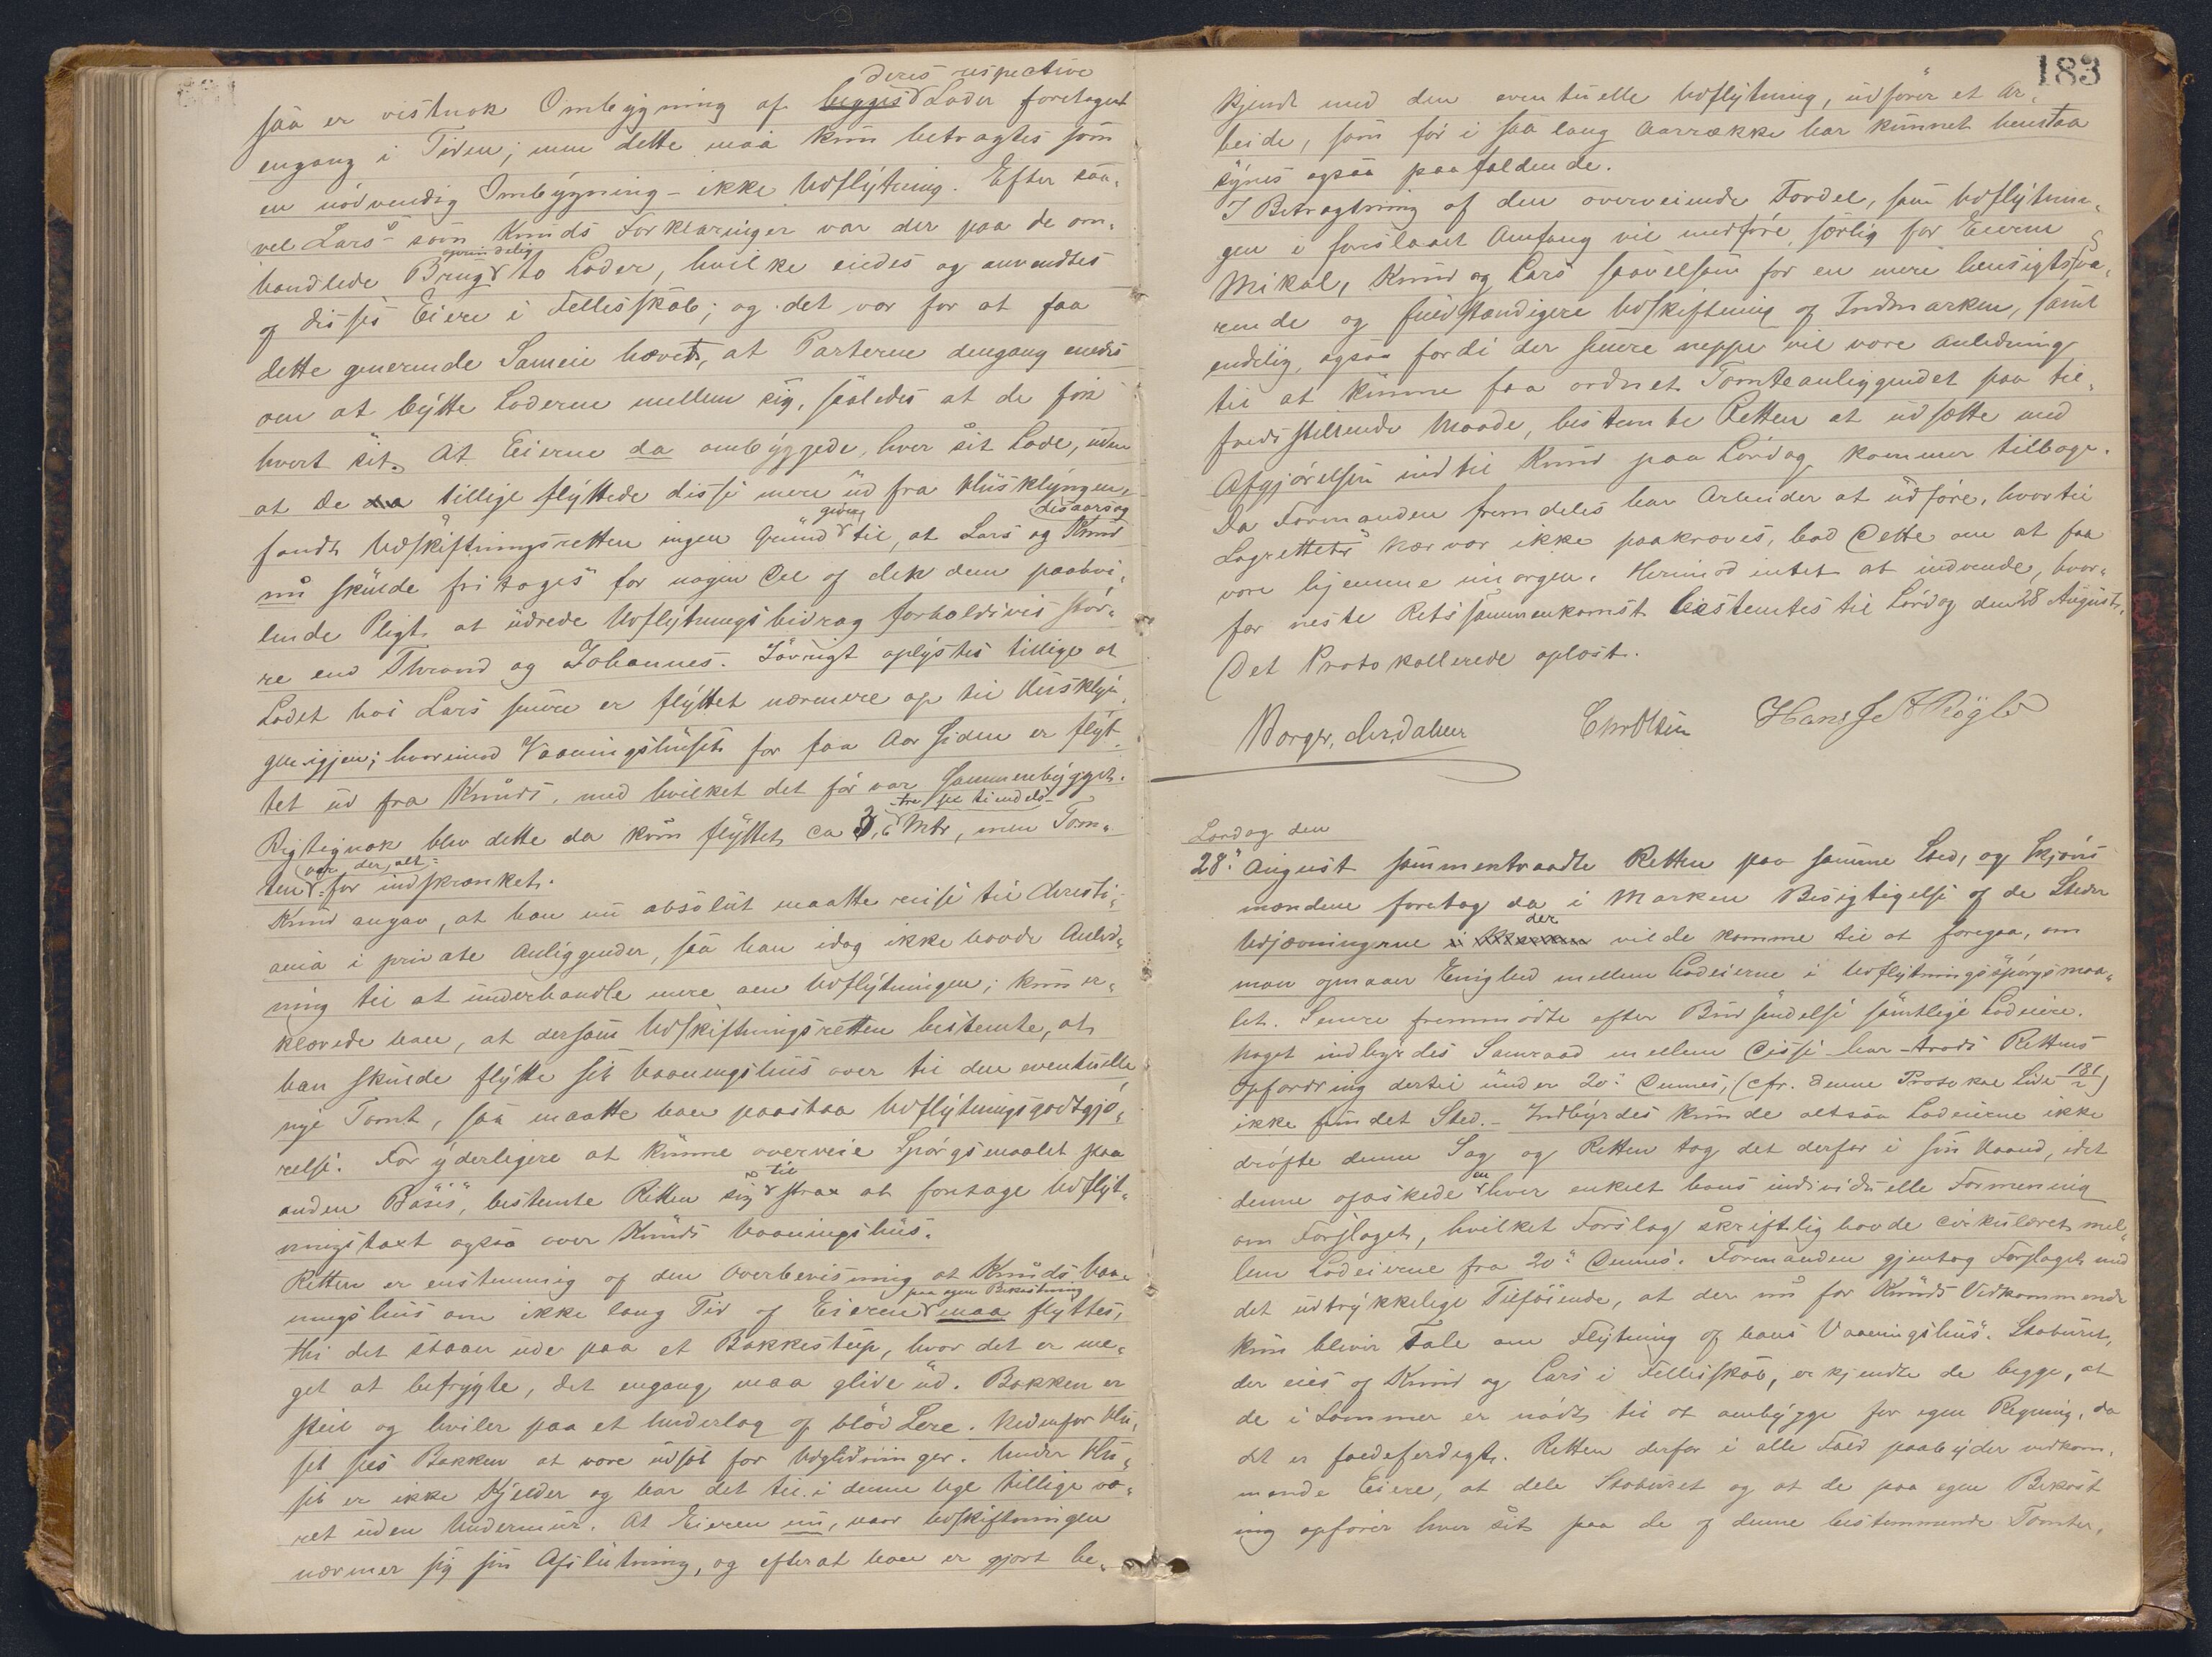 deres respective
saa er vistnok Ombygning af begges Lader foretaget
engang i Tiden; men dette maa kun betragtes som
en nödvendig Ombygning – ikke Udflytning. Efter saa-
vel Lars's som Knuds Forklaringer var der paa de om-
oprindelig
handlede Brug to Lader, hvilke eiedes og anvendtes
af disses Eiere i Fellesskab; og det var for at faa
dette generende Sameie hævet, at Parterne dengang enedes
om at bytte Laderne mellem sig, saaledes at de fik
hvert sit. At Eierne da ombyggede, hver sit Lade, uden
at de tillige flyttede disse mere ud fra Husklyngen,
gyldig disaarsag
fandt Udskiftningsretten ingen Grund til, at Lars og Knud
nu skulde fritages for nogen Del af dek dem paahvi-
lende Pligt at udrede Udflytningsbidrag forholdsvis stör-
re end Thrond og Johannes. Iövrigt oplystes tillige at
Ladet hos Lars senere er flyttet nærmere op til Husklyn-
gen igjen; hvorimod Vaaningshuset for faa Aar siden er flyt-
tet ud fra Knuds, med hvilket det för var sammenbygget.
tre sex tiendels
Rigtignok blev dette da kun flyttet ca 3,6 Mtr, men Tom-
var der, alt
ten för indskrænket.
Knud angav, at han nu absolut maatte reise til Christi-
ania i private Anliggender, saa han idag ikke havde Anled-
ning til at underhandle mere om Udflytningen; kun er-
klærede han, at dersom Udskiftningsretten bestemte, at
han skulde flytte sit Vaaningshus over til den eventuelle
nye Tomt, saa maatte han paastaa Udflytningsgodtgjö-
relse. For yderligere at kunne overveie Spörgsmaalet paa
til
anden "Basis", bestemte Retten sig strax at foretage Udflyt-
ningstaxt ogsaa over Knuds Vaaningshus.
Retten er enstemmig af den Overbevisning at Knuds Vaa-
paa egen Bekostning
ningshus om ikke lang Tid af Eieren maa flyttes,
thi det staaer ude paa et Bakkestup, hvor det er me-
get at befrygte, det engang maa glide ud. Bakken er
steil og hviler paa et Underlag af blöd Lere. Nedenfor Hu-
set sees Bakken at være udsat for Udglidninger. Under Hu-
set er ikke Kjelder og har det til i denne Uge tillige væ-
ret uden Undermur. At Eieren nu, naar Udskiftningen
nærmer sig sin Afslutning, og efterat han er gjort be-
183
kjendt med den eventuelle Udflytning, udförer et Ar-
beide, som för i saa lang Aarrække har kunnet henstaa
synes ogsaa paafaldende.
I Betragtning af den overveiende Fordel, som Udflytnin-
gen i foreslaaet Omfang vil medföre, særlig for Eierne
Mikal, Knud og Lars saavelsom for en mere hensigtsva-
rende og fuldstændigere Udskiftning af Indmarken, samt
endelig ogsaa fordi der senere neppe vil være Anledning
til at kunne faa ordnet Tomteanliggendet paa til-
fredsstillende Maade, bestemte Retten at udsætte med
Afgjörelsen indtil Knud paa Lördag kommer tilbage.
Da Formanden fremdeles har Arbeider at udföre, hvortil
Lagrettets Nærvær ikke paakræves, bad Dette om at faa
være hjemme imorgen. Herimod intet at indvende, hvor-
for neste Retssammenkomst bestemtes til Lördag den 28 August.
Det Protokollerede oplæst.
Chr Olsen
Lördag den
28de August sammentraadte Retten paa samme Sted, og Skjöns-
mændene foretog da i Marken Besigtigelse af de Steder
der
Udjævningerne vilde komme til at foregaa, om
man opnaaer Enighed mellem Lodeierne i Udflytningsspörgsmaa-
let. Senere fremmödte efter Budsendelse samtlige Lodeiere.
Noget indbyrdes Samraad mellem Disse har trods Rettens
Opfordring dertil under 20de Dennes, (cfr. denne Protokol Side 181/2)
ikke fundet Sted. – Indbyrdes kunde altsaa Lodeierne ikke
dröfte denne Sag og Retten tog det derfor i sin Haand, idet
en
denne opæskede hver enkelt hans individuelle Formening
om Forslaget, hvilket Forslag skriftlig havde cirkuleret mel-
lem Lodeierne fra 20de Dennes. Formanden gjentog Forslaget med
det udtrykkelige Tilföiende, at der nu for Knuds Vedkommende
kun bliver Tale om Flytning af hans Vaaningshus. Staburet,
der eies af Knud og Lars i Fellesskab, erkjendte de begge, at
de i Sommer er nödt til at ombygge for egen Regning, da
det er faldeferdigt. Retten derfor i alle Fald paabyder vedkom-
mende Eiere, at dele Staburet og at de paa egen Bekost-
ing opförer hver sit paa de af denne bestemmende Tomter,